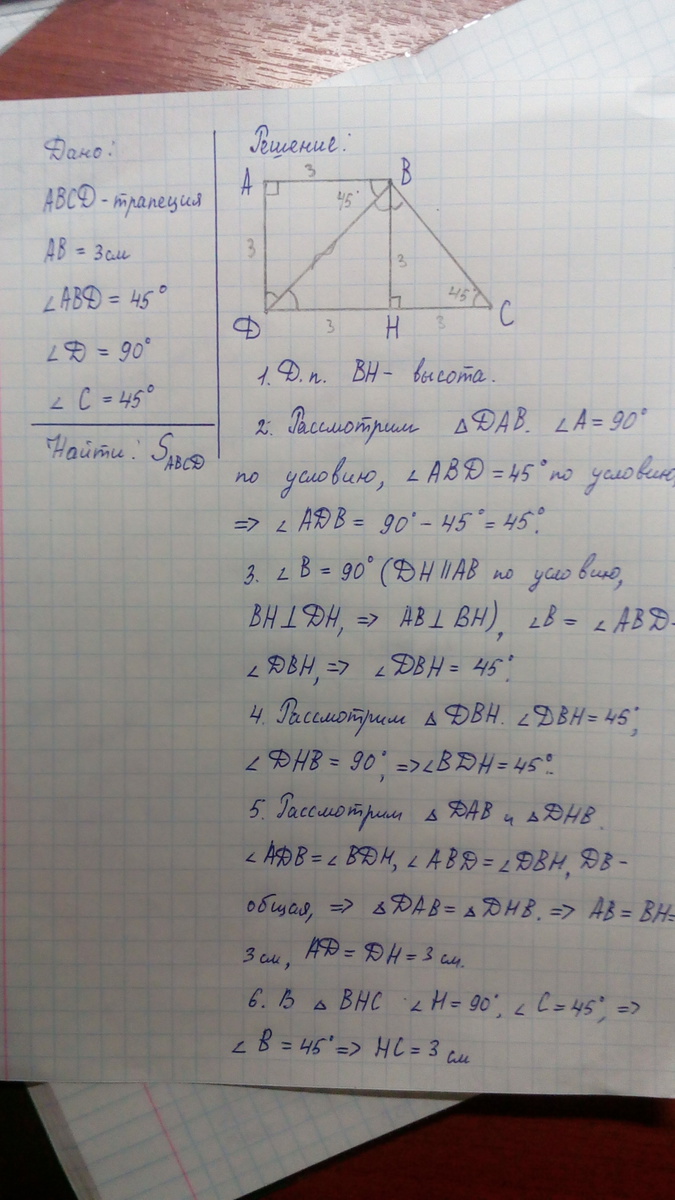 Дано:
ABCD - трапеция
AB = 3см
∠ABD = 45°
∠D = 90°
∠C = 45°
Найти: S ABCD
Решение:
A 3 B
45°
3 3
45°
D 3 H 3 C
1. Д.п. BH - высота.
2. Рассмотрим △DAB. ∠A = 90°
по условию, ∠ABD = 45° по условию,
=> ∠ADB = 90° - 45° = 45°.
3. ∠B = 90° (DH || AB по условию,
BH ⊥ DH, => AB ⊥ BH), ∠B = ∠ABD -
∠DBH, => ∠DBH = 45°.
4. Рассмотрим △DBH. ∠DBH = 45°,
∠DHB = 90°, => ∠BDH = 45°.
5. Рассмотрим △DAB и △DHB.
∠ADB = ∠BDH, ∠ABD = ∠DBH, DB -
общая, => △DAB = △DHB. => AB = BH =
3 см, AD = DH = 3 см.
6. В △BHC ∠H = 90°, ∠C = 45°, =>
∠B = 45° => HC = 3 см